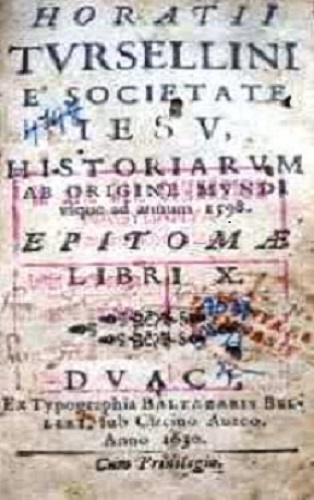 HORATII
TVRSELLINI
E SOCIETATE
IESV,
HISTORIARVM
AB ORIGINE MVNDI
vsque ad annum 1598.
EPITOMÆ
LIBRI X.
DVACI,
Ex Typographia BALTAZARIS BEL-
LERI, sub Circino Aureo.
Anno 1630.
Cum Priuilegio.